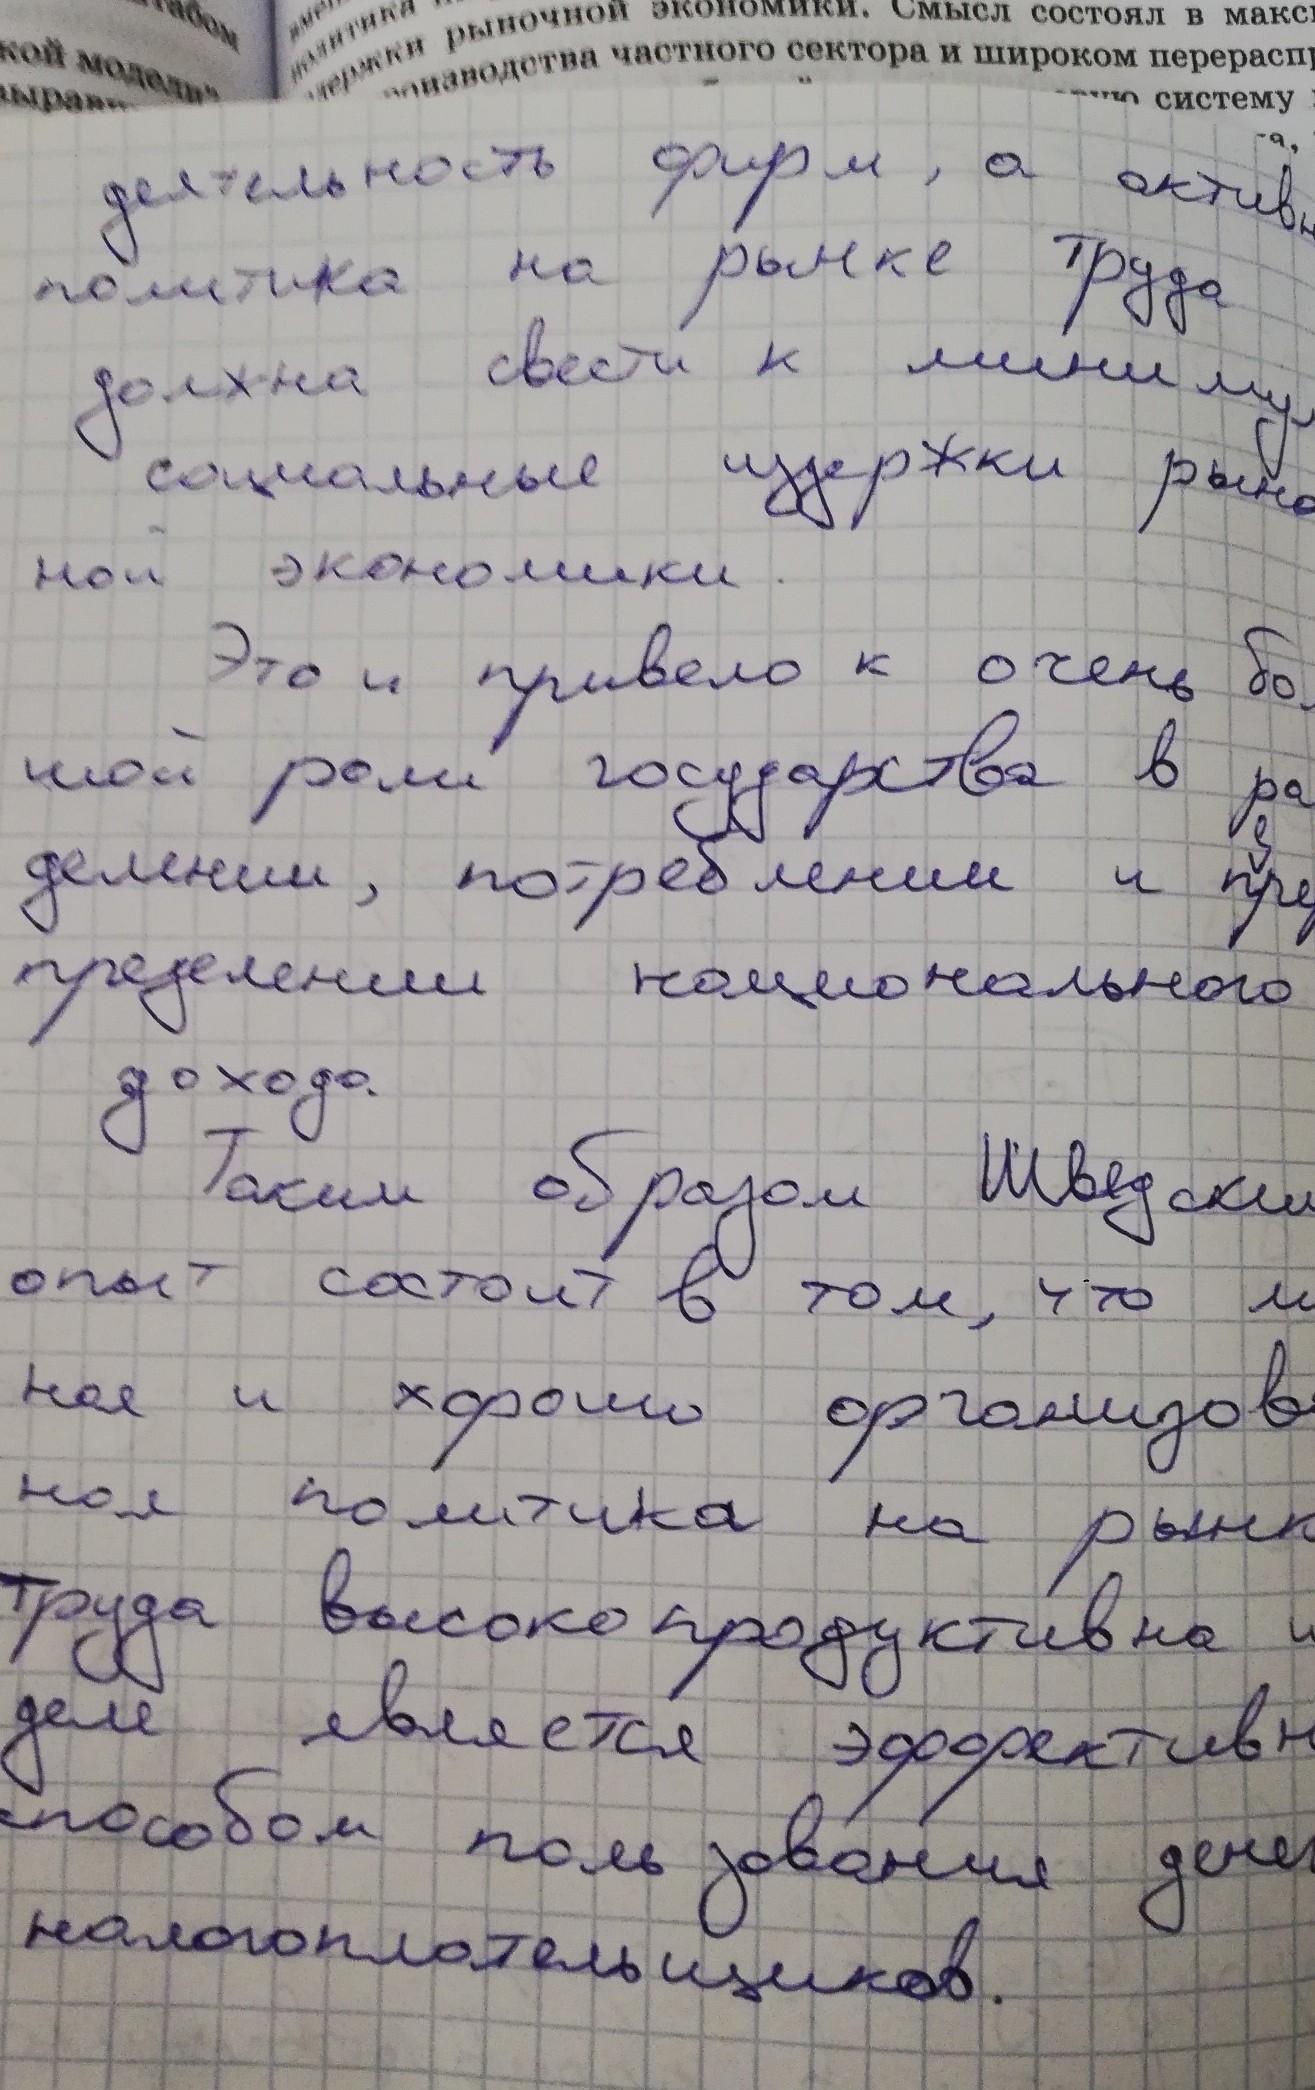 кой модели"
рыночной экономики. Смысл состоял в макс
производства частного сектора и широком перераспр
систему
деятельность фирм, а активн
политика на рынке труда
должна свести к миниму
социальные издержки рыно
ной экономики.
Это и привело к очень бол
шой роли государства в ра
делении, потреблении и
пределении национального
дохода.
Таким образом Шведски
опыт состоит в том, что
ная и хорошо организов
ная политика на рынк
труда высокопродуктивна и
деле является эффективн
способом пользования денег
налогоплательщиков.